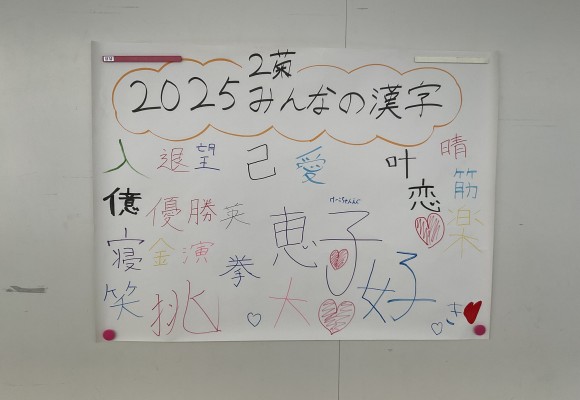 2菊
2025 みんなの漢字
人 退 望 己 愛 叶 晴
億 優 勝 英 恵子 恋 筋
寝 金 演 拳 楽
笑 挑 大 好 き